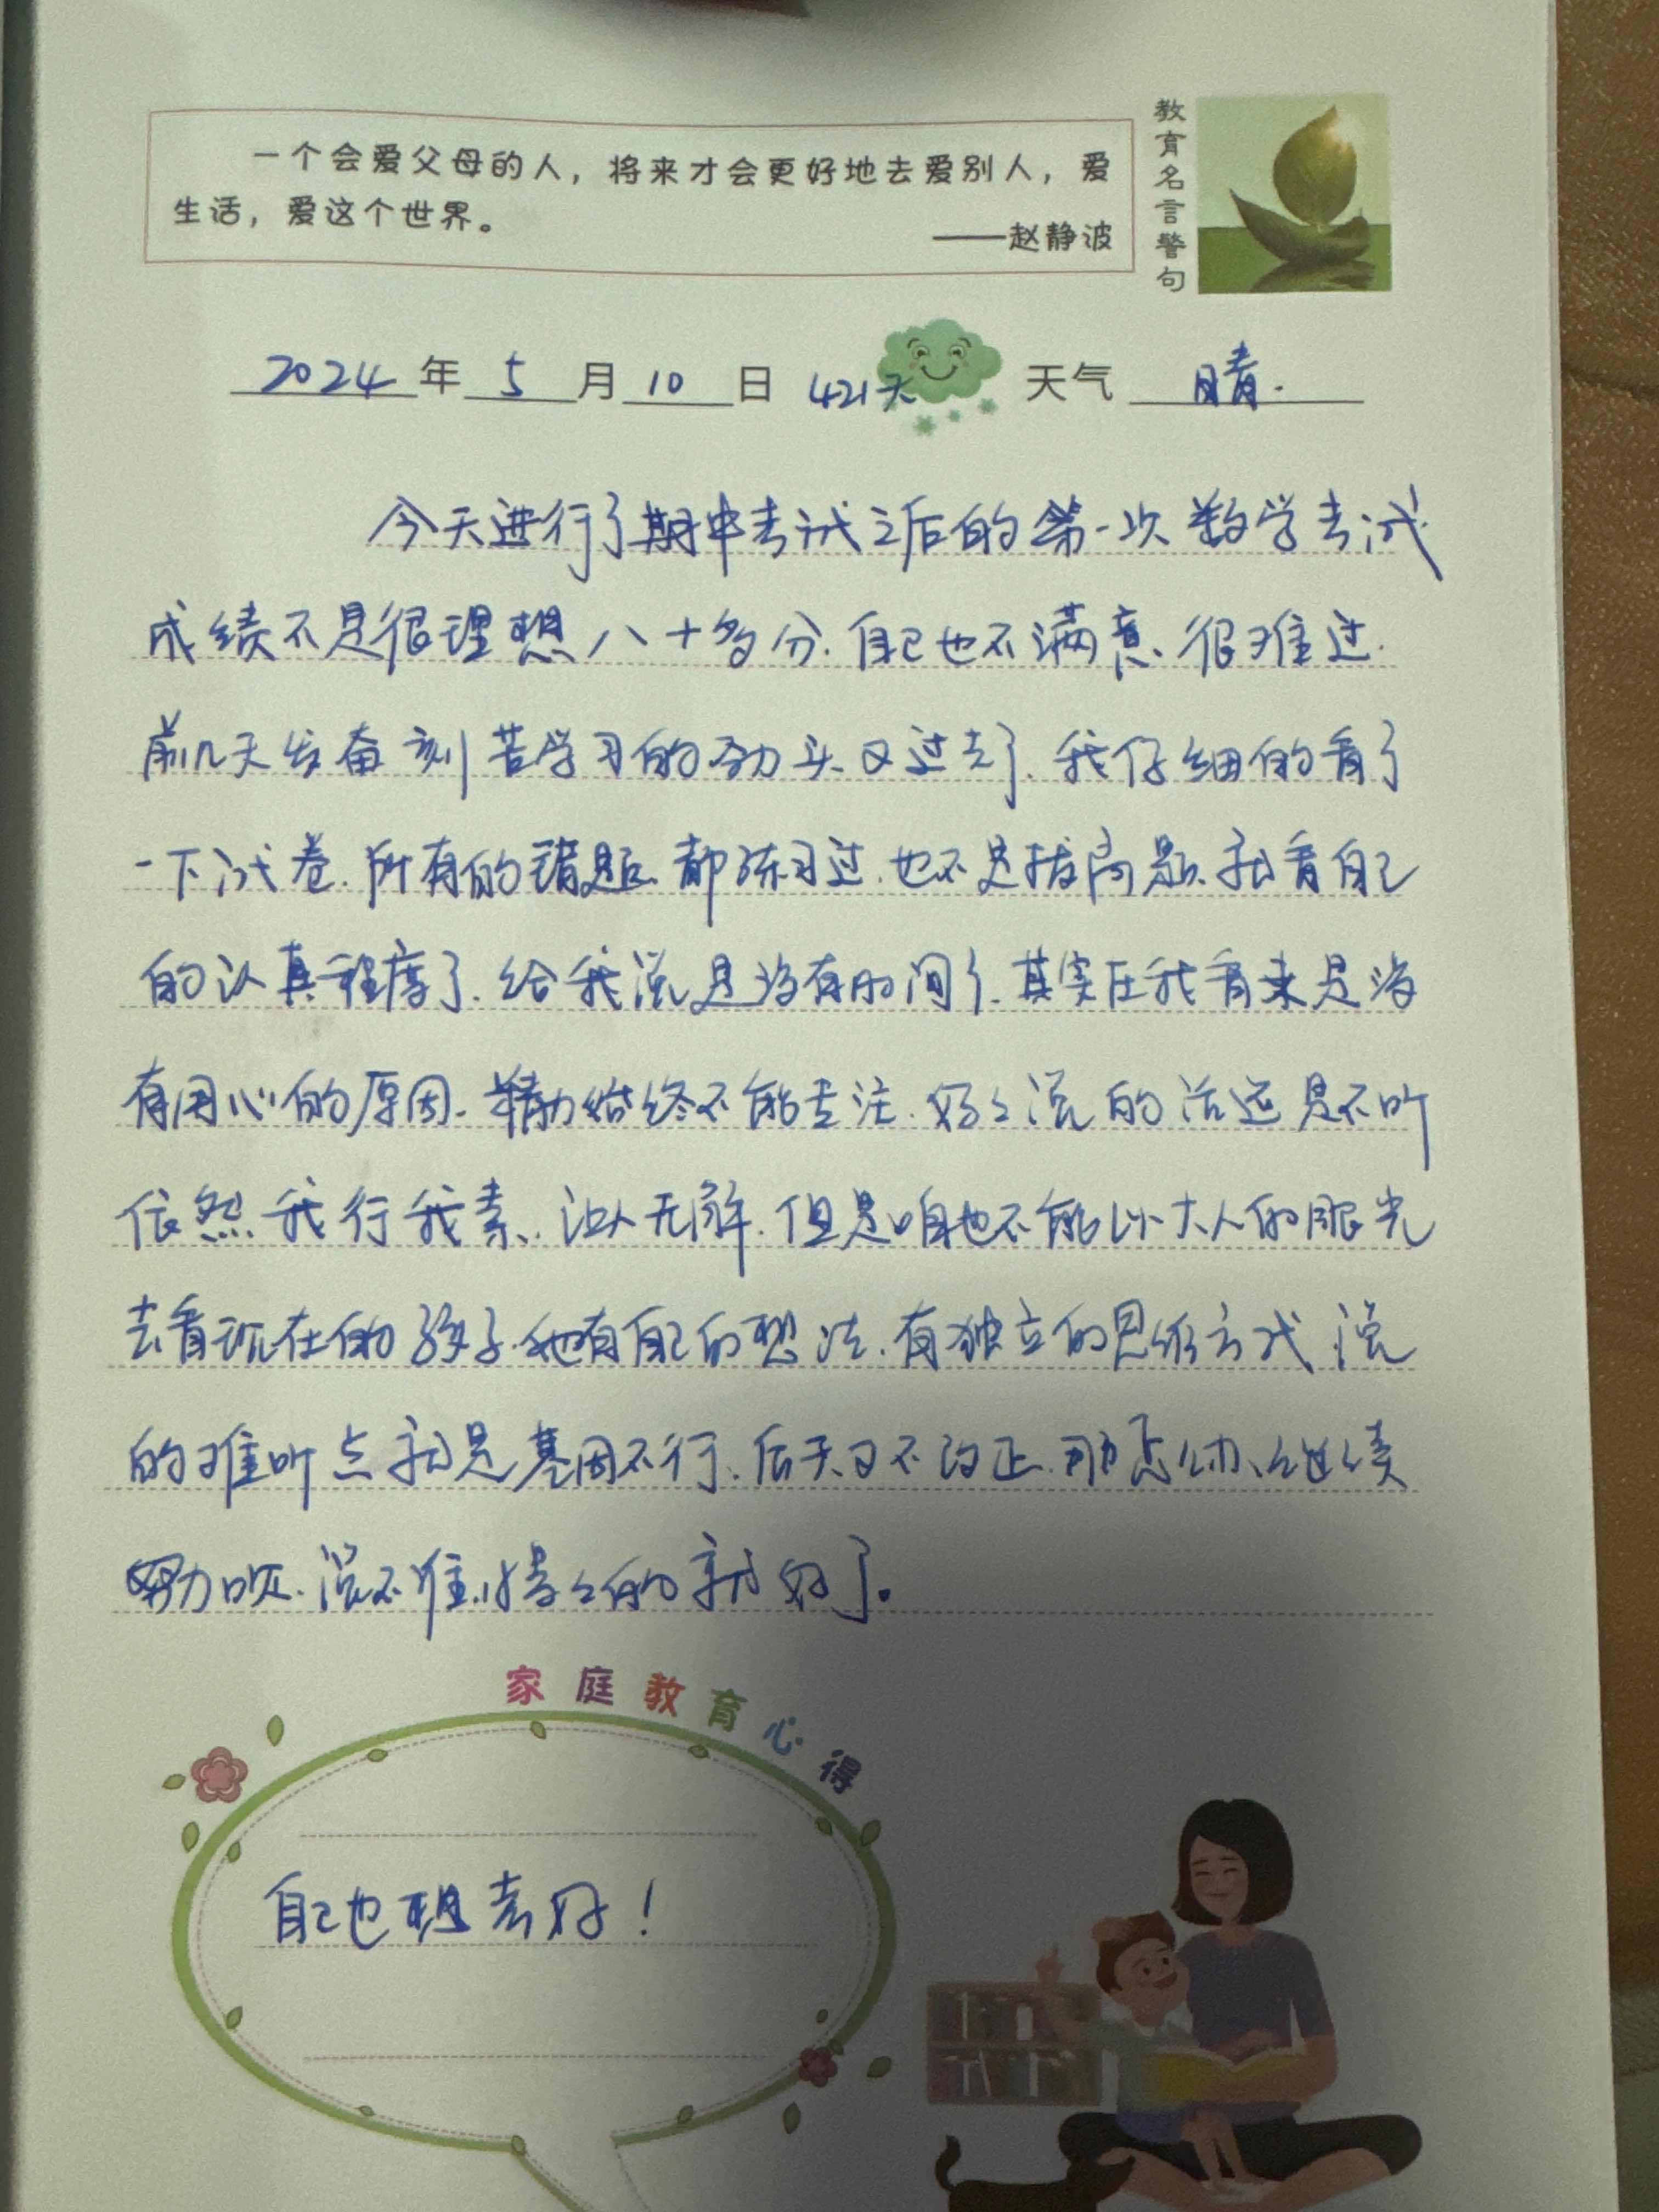 一个会爱父母的人，将来才会更好地去爱别人，爱
生活，爱这个世界。
——赵静波
教育名言警句
2024年5月10日 421天 天气 晴.
今天进行了期中考试之后的第一次数学考试
成绩不是很理想八十多分.自己也不满意、很难过.
前几天发奋刻苦学习的劲头又过去了.我仔细的看了
一下试卷.所有的错题、都练习过.也不是拔高题、就看自己
的认真程度了.给我说是没有时间了.其实在我看来是没
有用心的原因.精力始终不能专注.好好说的话还是不听
依然我行我素、让人无解.但是咱也不能以大人的眼光
去看现在的孩子.他有自己的想法.有独立的思维方式.说
的难听点就是基因不行.后天又不改正.那怎么办、继续
努力呗.说不准.慢慢的就好了。
家庭教育心得
自己也想考好！